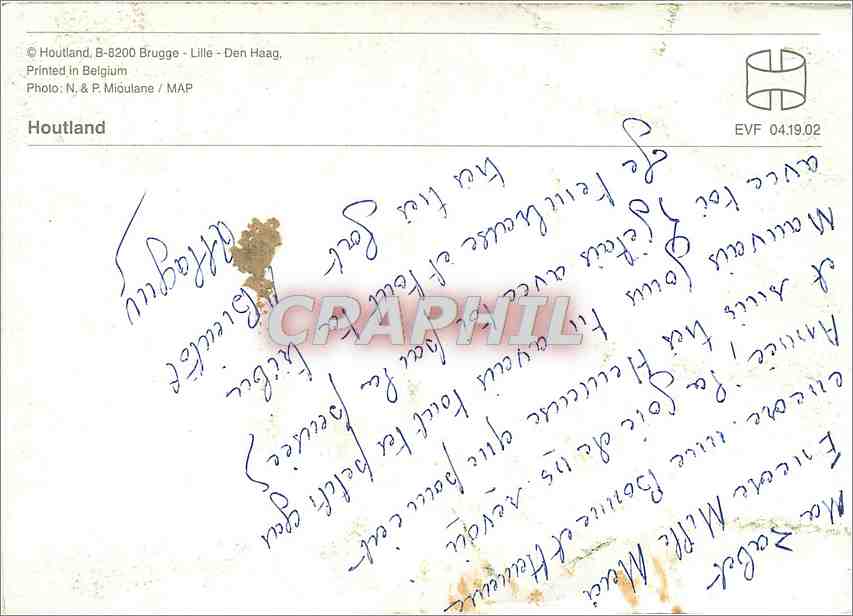 © Houtland, B-8200 Brugge - Lille - Den Haag,
Printed in Belgium
Photo: N. & P. Mioulane / MAP
Houtland
EVF 04.19.02
CPAPHIL
Ma
Encore Mille Merci
encore une Bonne et Heureuse
Année, la Joie de vs. revoir
et suis très Heureuse que pour cent
Mauvais Jours tu avais tout tes petits gars
avec toi J'étais avec toi par la pensée
Je t'embrasse et tout ta tribu
très très fort
A Bientôt